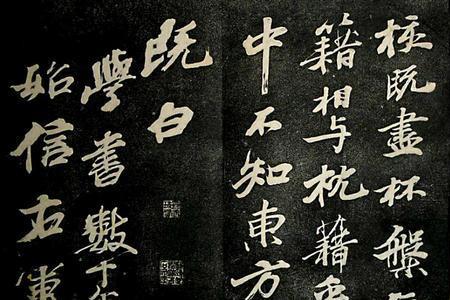 核既盡杯盤
籍相与枕籍乎
中不知東方
既白
學書數十年
始信右軍